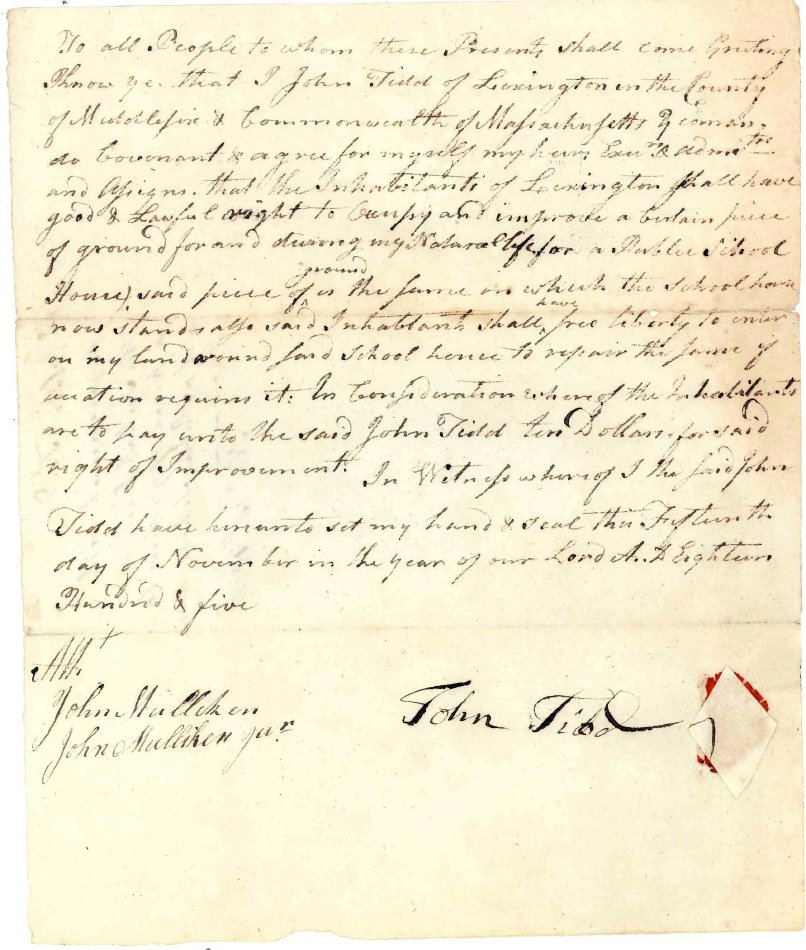 To all People to whom these Presents shall come Greeting
Know ye. that I John Tidd of Lexington in the County
of Middlesix & Commonwealth of Massachusetts Yeoman.
do Covenant & agree for myself my heirs Exec.rs & admin.trs
and Assigns. that the Inhabitants of Lexington shall have
good & Lawful right to Occupy and improve a Certain piece
of ground for and during my Natural life for a Public School
House, said piece of ground is the same on which the School house
now stands also said Inhabitants shall have free liberty to enter
on my land round said School house to repair the same if
occation requires it: In Consideration where of the Inhabitants
are to pay unto the said John Tidd ten Dollars for said
right of Improvement.
In Witness where of I the said John
Tidd have hereunto set my hand & seal this Fifteenth
day of November in the year of our Lord A. D Eighteen
Hundrid & five
Att.t
John Mulliken
John Mulliken Jur.
John Tidd